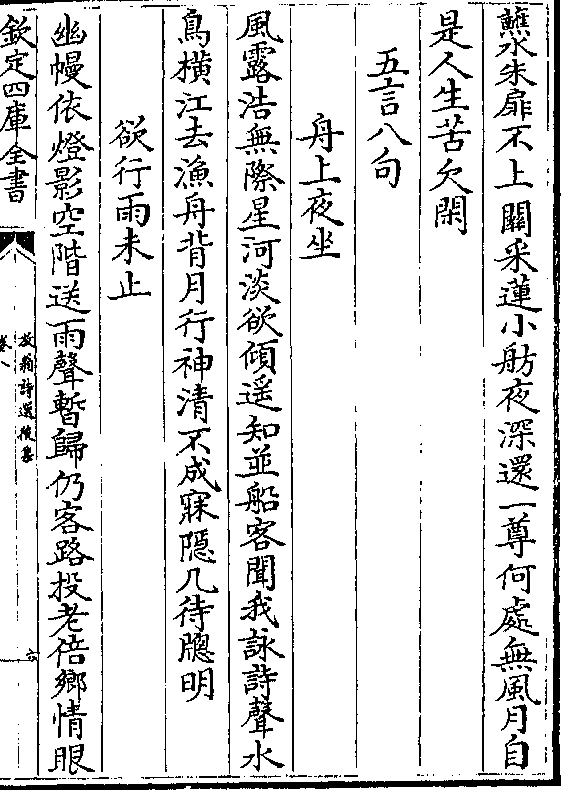 蘸水朱扉不上關采蓮小舫夜深還一尊何處無風月自
是人生苦欠閑
五言八句
舟上夜坐
風露浩無際星河淡欲傾遥知並船客聞我詠詩聲水
鳥橫江去漁舟背月行神清不成寐隱几待牕明
欲行雨未止
幽幔依燈影空階送雨聲暫歸仍客路投老倍鄉情眼
欽定四庫全書
放翁詩選後集
卷八
六